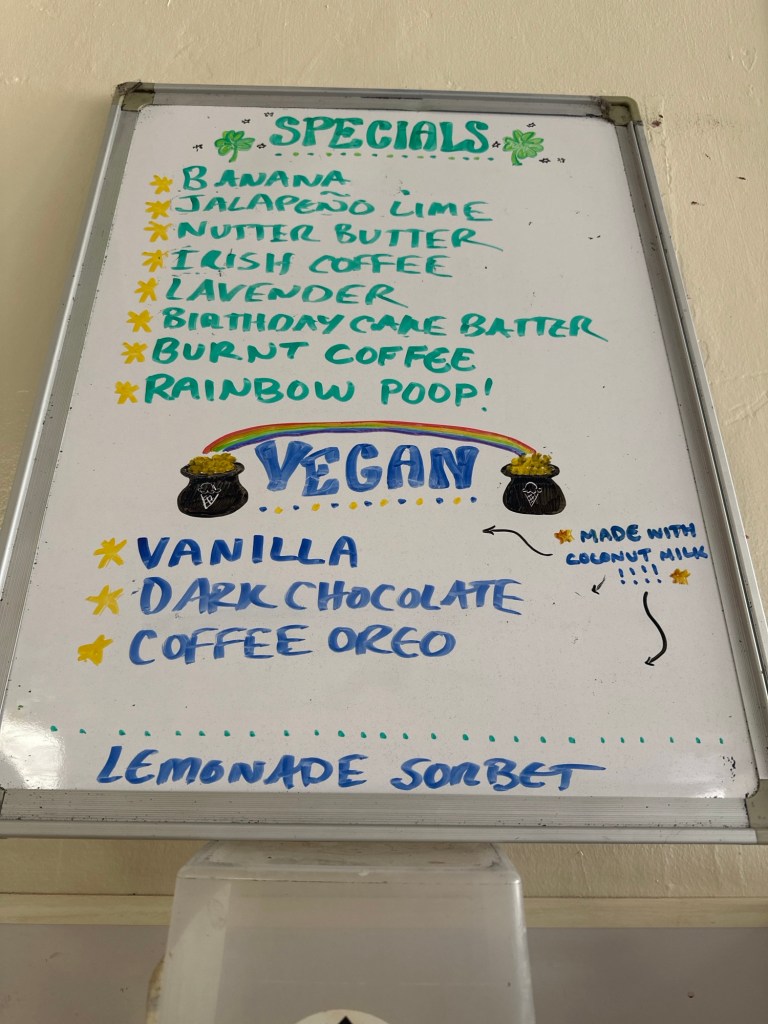 SPECIALS
BANANA
JALAPEÑO LIME
NUTTER BUTTER
IRISH COFFEE
LAVENDER
BIRTHDAY CAKE BATTER
BURNT COFFEE
RAINBOW POOP!
VEGAN
MADE WITH
COCONUT MILK
!!!!
VANILLA
DARK CHOCOLATE
COFFEE OREO
LEMONADE SORBET